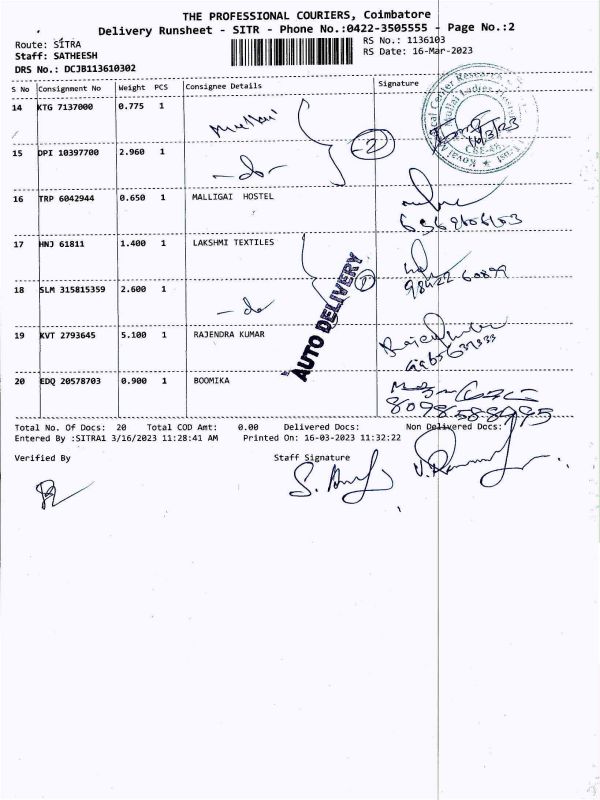 THE PROFESSIONAL COURIERS, Coimbatore
Delivery Runsheet - SITR - Phone No.:0422-3505555 - Page No.:2
Route: SITRA
RS No.: 1136103
Staff: SATHEESH
RS Date: 16-Mar-2023
DRS No.: DCJB113610302
S No Consignment No Weight PCS Consignee Details Signature
14 KTG 7137000 0.775 1 Mullai
15 DPI 10397700 2.960 1 -do- 2
16 TRP 6042944 0.650 1 MALLIGAI HOSTEL
17 HNJ 61811 1.400 1 LAKSHMI TEXTILES
98422-60899
18 SLM 315815359 2.600 1 -do-
AUTO DELIVERY
19 KVT 2793645 5.100 1 RAJENDRA KUMAR
20 EDQ 20578703 0.900 1 BOOMIKA
8098588995
Total No. Of Docs: 20 Total COD Amt: 0.00 Delivered Docs: Non Delivered Docs:
Entered By :SITRA1 3/16/2023 11:28:41 AM Printed On: 16-03-2023 11:32:22
Verified By Staff Signature